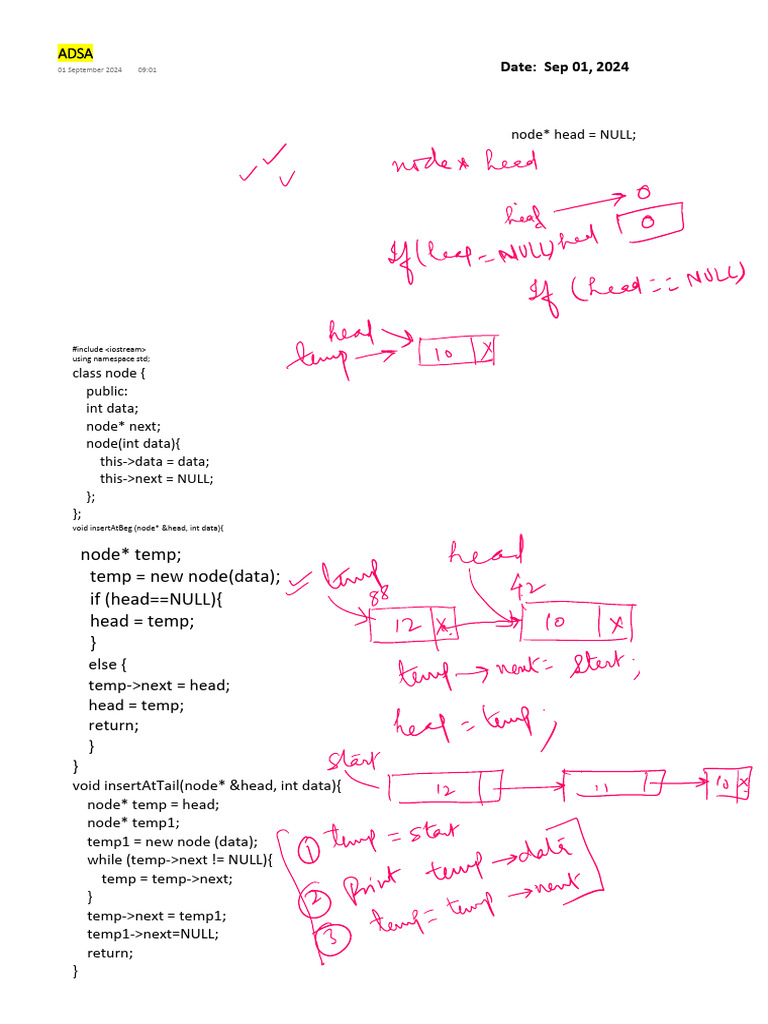 ADSA
01 September 2024 09:01
Date: Sep 01, 2024
node* head = NULL;
node* head
head → 0
0
If (heap = NULL) head
If (head == NULL)
head
temp → 10 X
#include <iostream>
using namespace std;
class node {
public:
int data;
node* next;
node(int data){
this->data = data;
this->next = NULL;
};
};
void insertAtBeg (node* &head, int data){
node* temp;
temp = new node(data);
if (head==NULL){
head = temp;
}
else {
temp->next = head;
head = temp;
return;
}
}
head
temp
88 42
12 X 10 X
temp → next = Start;
heap = temp;
Start
12 11 10 X
void insertAtTail(node* &head, int data){
node* temp = head;
node* temp1;
temp1 = new node (data);
while (temp->next != NULL){
temp = temp->next;
}
temp->next = temp1;
temp1->next=NULL;
return;
}
1 temp = start
2 Print temp → data
3 temp = temp → next